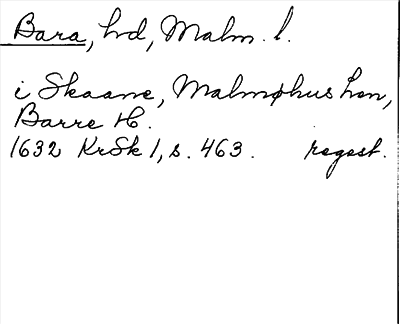 Bara, hd, Malm. l.
i Skaane, Malmøhus Len,
Barre H.
1632 KrSk 1, s. 463. regest.